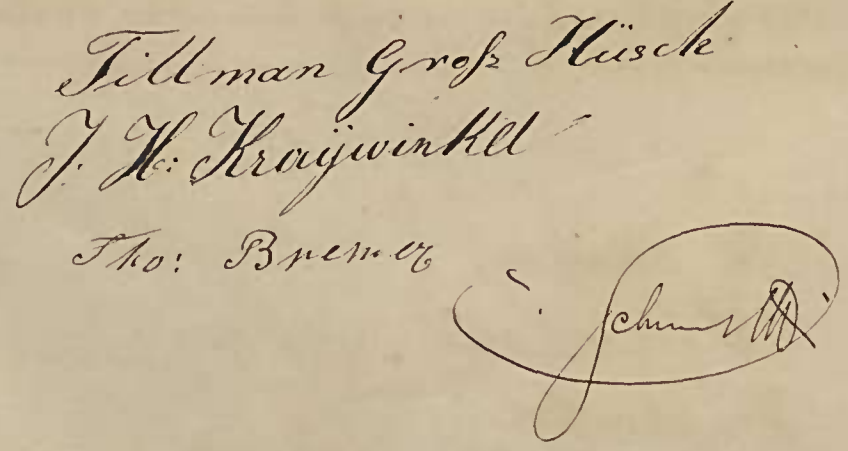 Tillman Groß Hüsck
J. H: Kraÿwinkel
Tho: Bremer